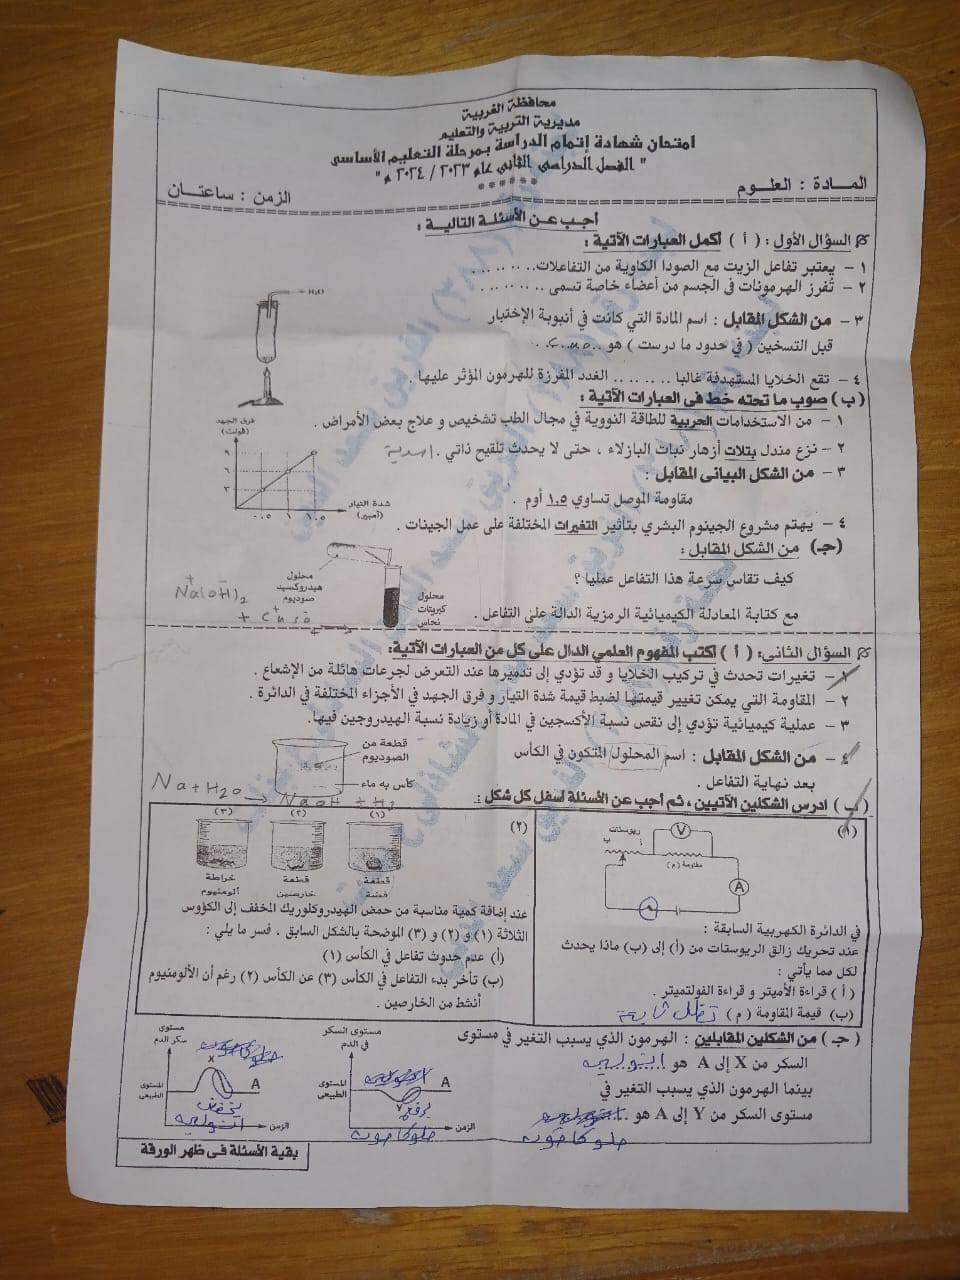 محافظة الغربية
مديرية التربية والتعليم
امتحان شهادة إتمام الدراسة بمرحلة التعليم الأساسى
" الفصل الدراسى الثانى عام ٢٠٢٣ / ٢٠٢٤ م "
******
المادة : العلوم
الزمن : ساعتان
أجب عن الأسئلة التالية :
السؤال الأول : ( أ ) أكمل العبارات الآتية :
١ - يعتبر تفاعل الزيت مع الصودا الكاوية من التفاعلات.. .. .. ..
٢ - تُفرز الهرمونات فى الجسم من أعضاء خاصة تسمى .. .. .. ..
٣ - من الشكل المقابل : اسم المادة التي كانت في أنبوبة الإختبار
قبل التسخين ( في حدود ما درست ) هو
H₂O
٤ - تقع الخلايا المستهدفة غالبا .. .. .. .. الغدد المفرزة للهرمون المؤثر عليها .
(ب) صوب ما تحته خط فى العبارات الآتية :
١ - من الاستخدامات الحربية للطاقة النووية في مجال الطب تشخيص و علاج بعض الأمراض .
٢ - نزع مندل بتلات أزهار نبات البازلاء ، حتى لا يحدث تلقيح ذاتي . اسدية
٣ - من الشكل البيانى المقابل :
مقاومة الموصل تساوي ١.٥ أوم .
فرق الجهد
(ڤولت)
٩
٦
٣
٠.٥ ١ ١.٥
شدة التيار
(أمبير)
٤ - يهتم مشروع الجينوم البشري بتأثير التغيرات المختلفة على عمل الجينات .
(جـ) من الشكل المقابل :
كيف تقاس سرعة هذا التفاعل عمليا ؟
مع كتابة المعادلة الكيميائية الرمزية الدالة على التفاعل .
محلول
هيدروكسيد
صوديوم
محلول
كبريتات
نحاس
Na(OH)₂
السؤال الثانى : ( أ ) اكتب المفهوم العلمي الدال على كل من العبارات الآتية:
١ - تغيرات تحدث في تركيب الخلايا و قد تؤدي إلى تدميرها عند التعرض لجرعات هائلة من الإشعاع .
٢ - المقاومة التي يمكن تغيير قيمتها لضبط قيمة شدة التيار و فرق الجهد في الأجزاء المختلفة في الدائرة .
٣ - عملية كيميائية تؤدي إلى نقص نسبة الأكسجين في المادة أو زيادة نسبة الهيدروجين فيها.
٤ - من الشكل المقابل : اسم المحلول المتكون في الكأس
بعد نهاية التفاعل .
قطعة من
الصوديوم
كأس به ماء
Na + H₂O → NaOH + H₂
( ب ) ادرس الشكلين الآتيين ، ثم أجب عن الأسئلة أسفل كل شكل :
(١)
ريوستات
ب أ
V
مقاومة ( م )
A
في الدائرة الكهربية السابقة :
عند تحريك زالق الريوستات من (أ) إلى (ب) ماذا يحدث
لكل مما يأتي :
( أ ) قراءة الأميتر و قراءة الفولتميتر .
(ب) قيمة المقاومة ( م ) تظل ثابتة
(٢)
(١) (٢) (٣)
قطعة
فضة
قطعة
خارصين
خراطة
ألومنيوم
عند إضافة كمية مناسبة من حمض الهيدروكلوريك المخفف إلى الكؤوس
الثلاثة (١) و (٢) و (٣) الموضحة بالشكل السابق ، فسر ما يلي :
(أ) عدم حدوث تفاعل في الكأس (١)
(ب) تأخر بدء التفاعل في الكأس (٣) عن الكأس (٢) رغم أن الألومنيوم
أنشط من الخارصين .
( جـ ) من الشكلين المقابلين : الهرمون الذي يسبب التغير في مستوى
السكر من X إلى A هو انسولين
بينما الهرمون الذي يسبب التغير في
مستوى السكر من Y إلى A هو
جلوكاجون
مستوى السكر
في الدم
المستوى
الطبيعى
A
Y
يرفع
الزمن
جلوكاجون
مستوى
سكر الدم
X
A
المستوى
الطبيعى
يخفض
الزمن
انسولين
بقية الأسئلة فى ظهر الورقة